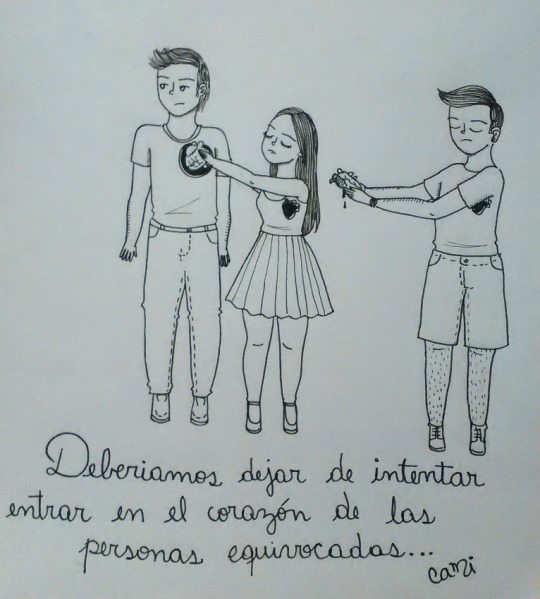 Deberiamos dejar de intentar
entrar en el corazón de las
personas equivocadas...
cami